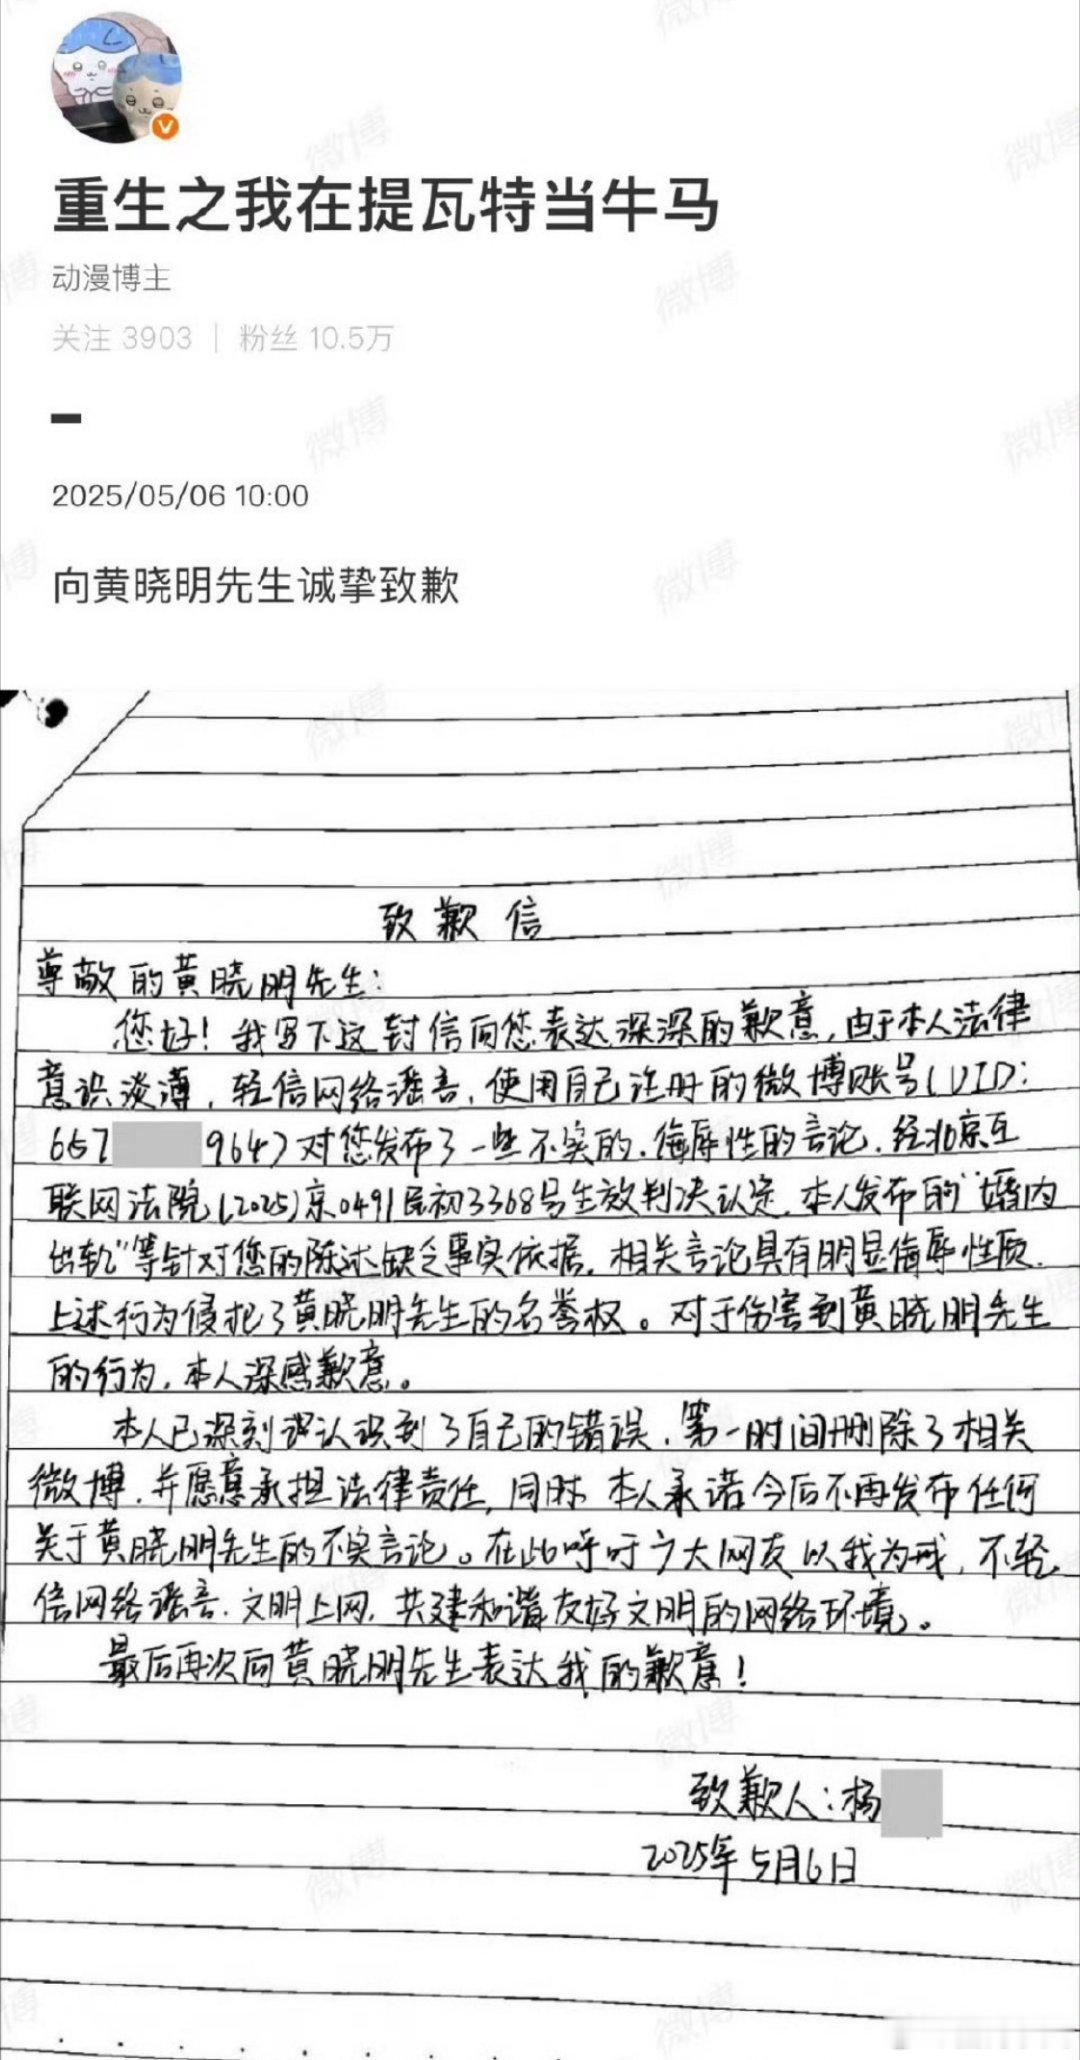 重生之我在提瓦特当牛马
动漫博主
关注 3903 | 粉丝 10.5万
2025/05/06 10:00
向黄晓明先生诚挚致歉
致歉信
尊敬的黄晓明先生:
您好!我写下这封信向您表达深深的歉意,由于本人法律
意识淡薄,轻信网络谣言,使用自己注册的微博账号(UID:
657 964)对您发布了一些不实的、侮辱性的言论,经北京互
联网法院(2025)京0491民初3368号生效判决认定,本人发布的“婚内
出轨”等针对您的陈述缺乏事实依据,相关言论具有明显侮辱性质.
上述行为侵犯了黄晓明先生的名誉权。对于伤害到黄晓明先生
的行为,本人深感歉意。
本人已深刻认识到了自己的错误,第一时间删除了相关
微博,并愿意承担法律责任,同时本人承诺今后不再发布任何
关于黄晓明先生的不实言论。在此呼吁广大网友以我为戒,不轻
信网络谣言.文明上网,共建和谐友好文明的网络环境。
最后再次向黄晓明先生表达我的歉意!
致歉人:杨
2025年5月6日
微博